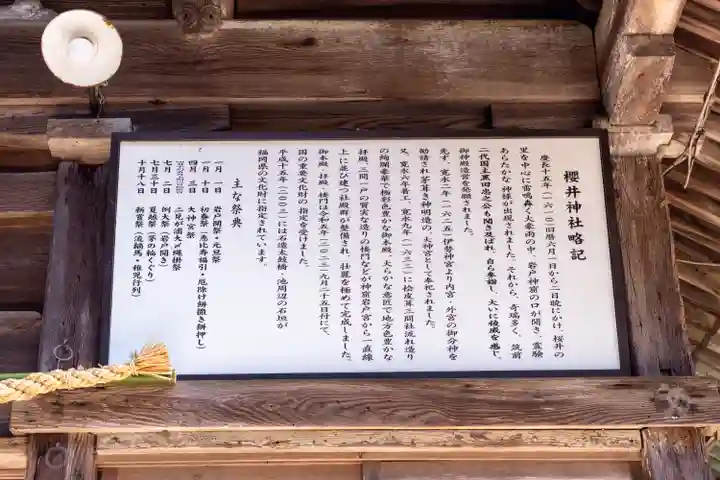 櫻井神社略記
慶長十五年(一六一〇)旧暦六月一日から二日暁にかけ、桜井の
里を中心に雷鳴轟く大豪雨の中、岩戸神窟の口が開き、霊験
あらたかな神様が出現されました。それから、奇瑞多く、筑前
二代国主黒田忠之公も聞き及ばれ、自ら参詣し、大いに稜威を感じ、
御神殿造営を発願されました。
先ず、寛永二年(一六二五)伊勢神宮より内宮・外宮の御分神を
勧請され茅葺き神明造の、大神宮として奉祀されました。
又、寛永六年着工、寛永九年(一六三二)に桧皮葺三間社流れ造り
の絢爛豪華で極彩色豊かな御本殿、大らかな意匠で地方色豊かな
拝殿、三間一戸の質実な造りの楼門などが神窟岩戸宮から一直線
上に並び建つ社殿群が整備され、壮麗を極めて完成しました。
御本殿・拝殿・楼門は令和五年(二〇二三)九月二十五日付にて、
国の重要文化財の指定を受けました。
平成十五年(二〇〇三)には石造太鼓橋・池周辺の石垣が
福岡県の文化財に指定されています。
主な祭典
一月一日 岩戸開祭・元旦祭
一月十日 初春祭(恵比寿福引・厄除け餅撒き餅押し)
四月三日 大神宮祭
二見が浦大〆縄掛祭
七月二日 例大祭(岩戸開き)
七月三十日 夏越祭(茅の輪くぐり)
十月十八日 新嘗祭(流鏑馬・稚児行列)